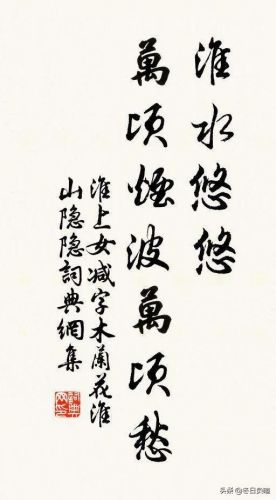 淮水悠悠
萬頃煙波萬頃愁
淮上女減字木蘭花淮
山隐隐詞典網集
头条@冬日贞曈